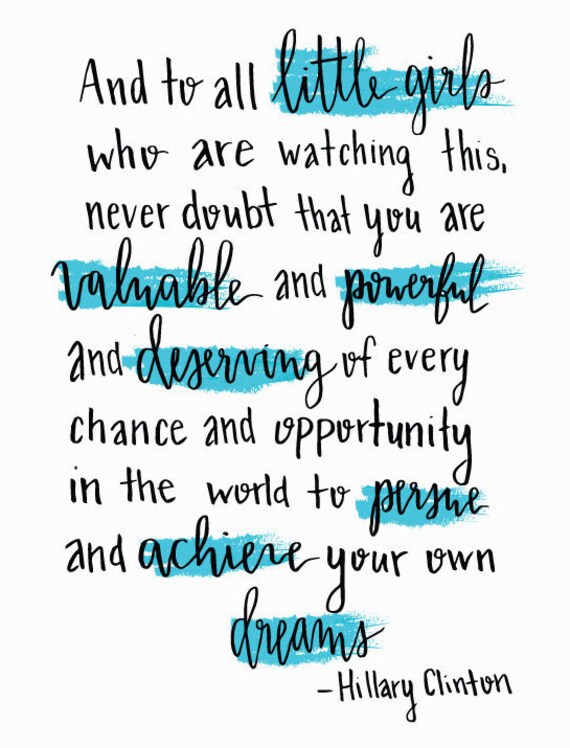 And to all little girls
who are watching this,
never doubt that you are
valuable and powerful
and deserving of every
chance and opportunity
in the world to persue
and achieve your own
dreams
- Hillary Clinton